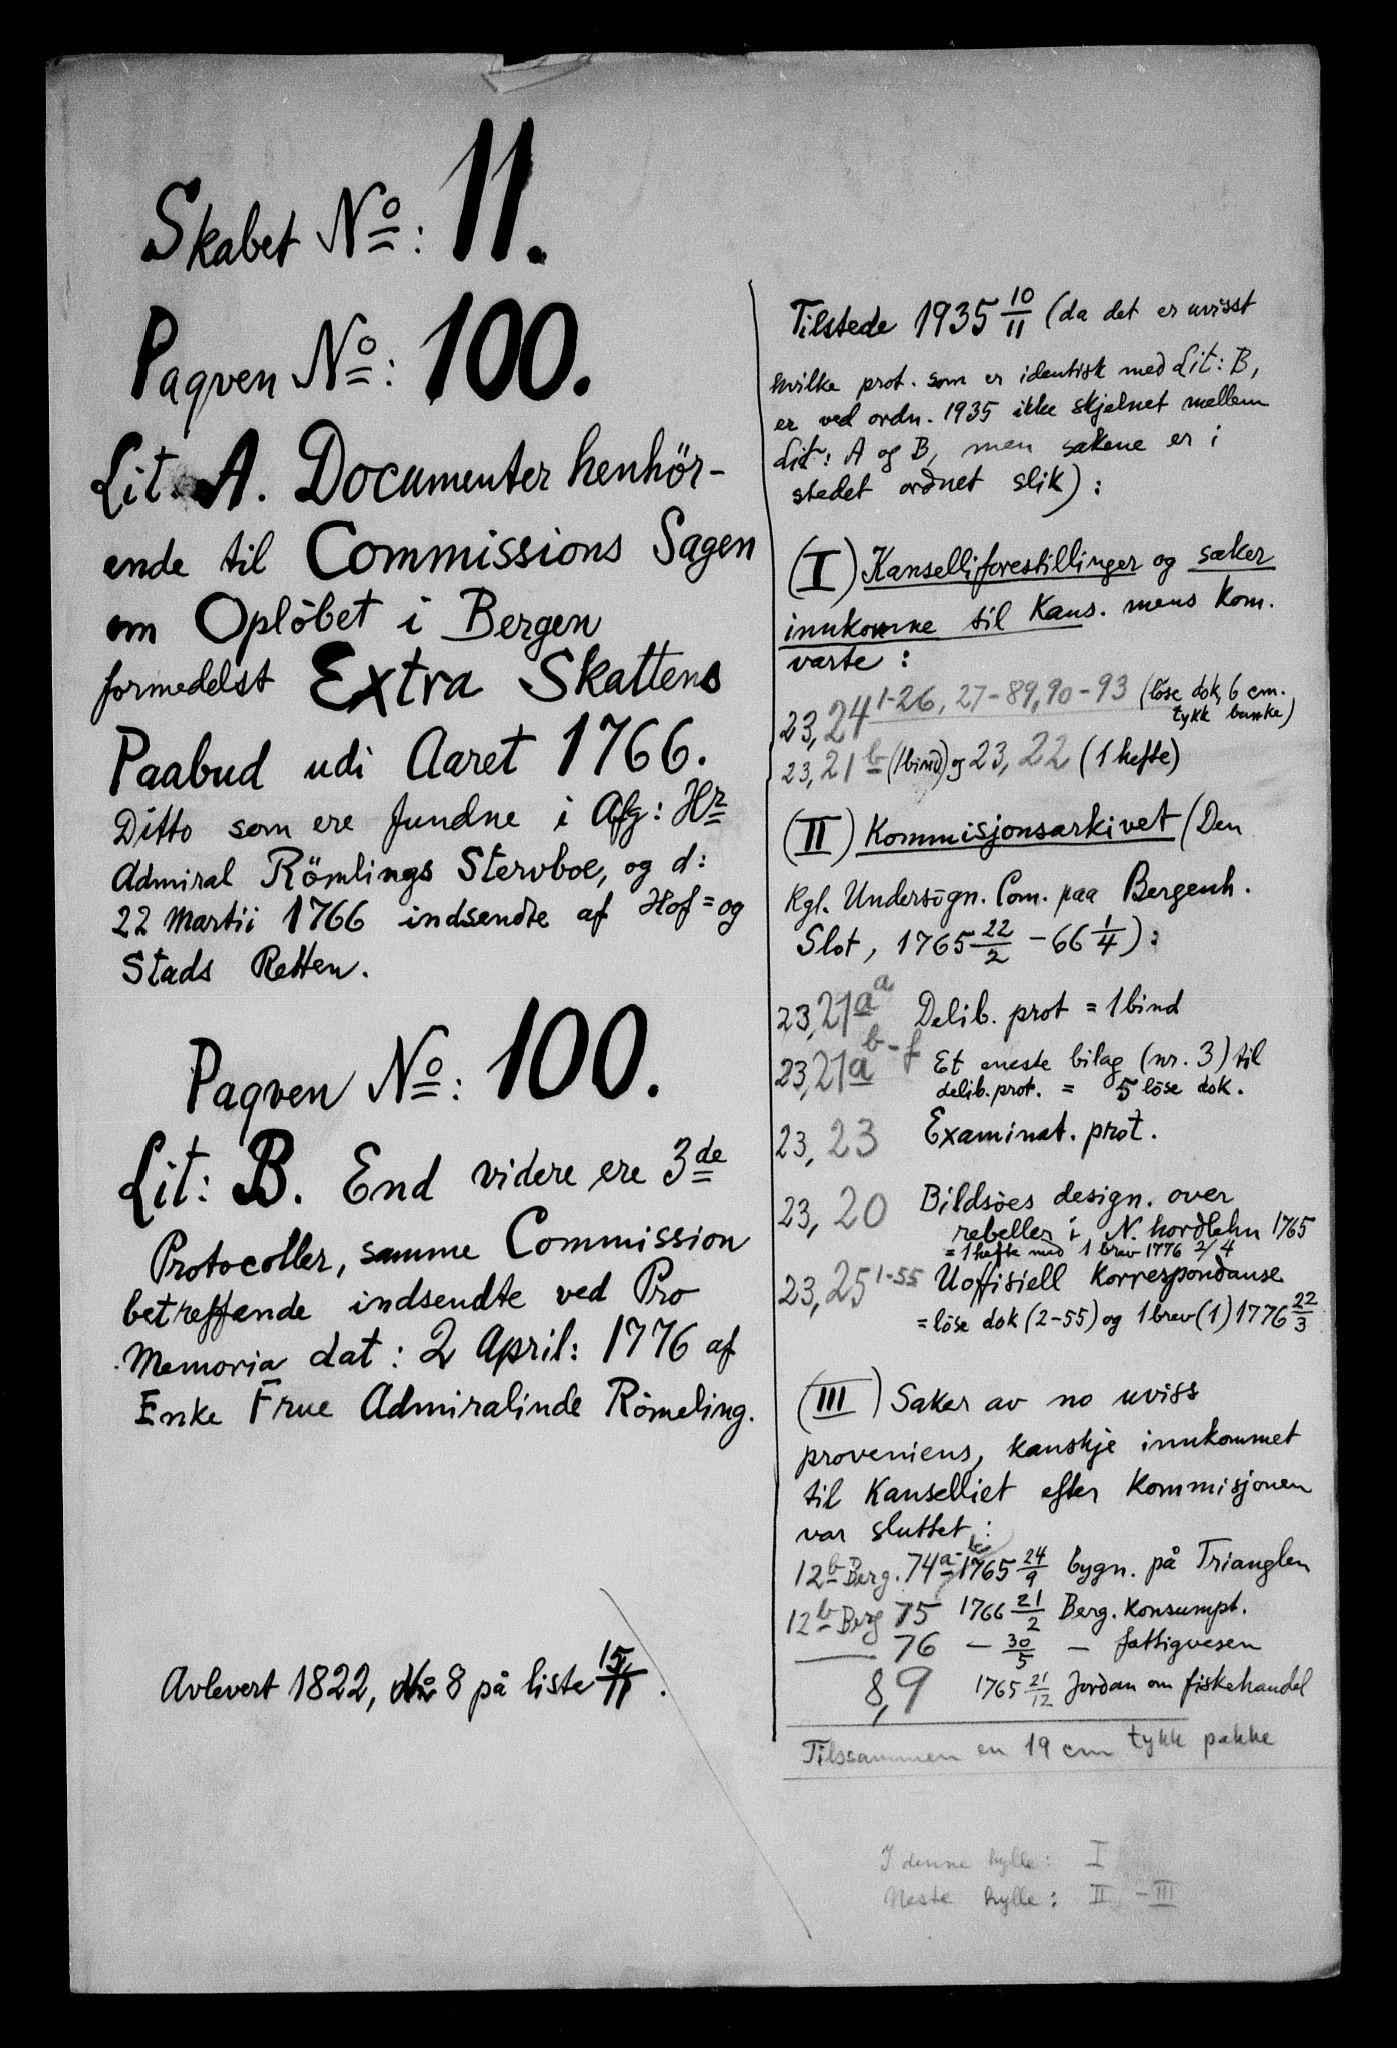 Skabet No: 11.
Paqven No: 100.
Lit. A. Documenter henhör-
ende til Commissions Sagen
om Oplöbet i Bergen
formedelst Extra Skattens
Paabud udi Aaret 1766.
Ditto som ere fundne i Afg: Hr
Admiral Römlings Stervboe, og d:
22 Martii 1766 indsendte af Hof= og
Stads Retten.
Paqven No: 100.
Lit: B. End videre ere 3de
Protocoller, samme Commission
betreffende indsendte ved Pro
Memoria dat: 2 April: 1776 af
Enke Frue Admiralinde Römeling.
Avlevert 1822, 8 på liste 15/11.
Tilstede 1935 10/11 (da det er uvisst
hvilke prot. som er identisk med Lit: B,
er ved ordn. 1935 ikke skjelnet mellem
Lit: A og B, men sakene er i
stedet ordnet slik):
(I) Kanselliforestillinger og saker
innkomne til Kans. mens Kom.
varte:
23,24 1-26, 27-89, 90-93 (löse dok, 6 cm.
tykk bunke)
23,21b (1 bind) og 23,22 (1 hefte)
(II) Kommisjonsarkivet (Den
Kgl. Undersögn. Com. paa Bergenh.
Slot, 1765 22/2 - 66 1/4):
23,21a a Delib. prot = 1 bind
23,21a b-f Et eneste bilag (nr. 3) til
delib. prot. = 5 löse dok.
23,23 Examinat. prot.
23,20 Bildsöes design. over
rebeller i N. hordlehn 1765
= 1 hefte med 1 brev 1776 2/4
23,25 1-55 Uoffisiell korrespondanse
= löse dok (2-55) og 1 brev (1) 1776 22/3
(III) Saker av no uviss
proveniens, kanskje innkommet
til Kanselliet efter Kommisjonen
var sluttet:
12b Berg. 74a-b 1765 24/9 bygn. på Trianglen
12b Berg 75 1766 21/2 Berg. konsumpt.
76 — 30/5 — fattigvesen
8,9 1765 21/12 Jordan om fiskehandel
Tilssammen en 19 cm tykk pakke
I denne hylle: I
Neste hylle: II - III